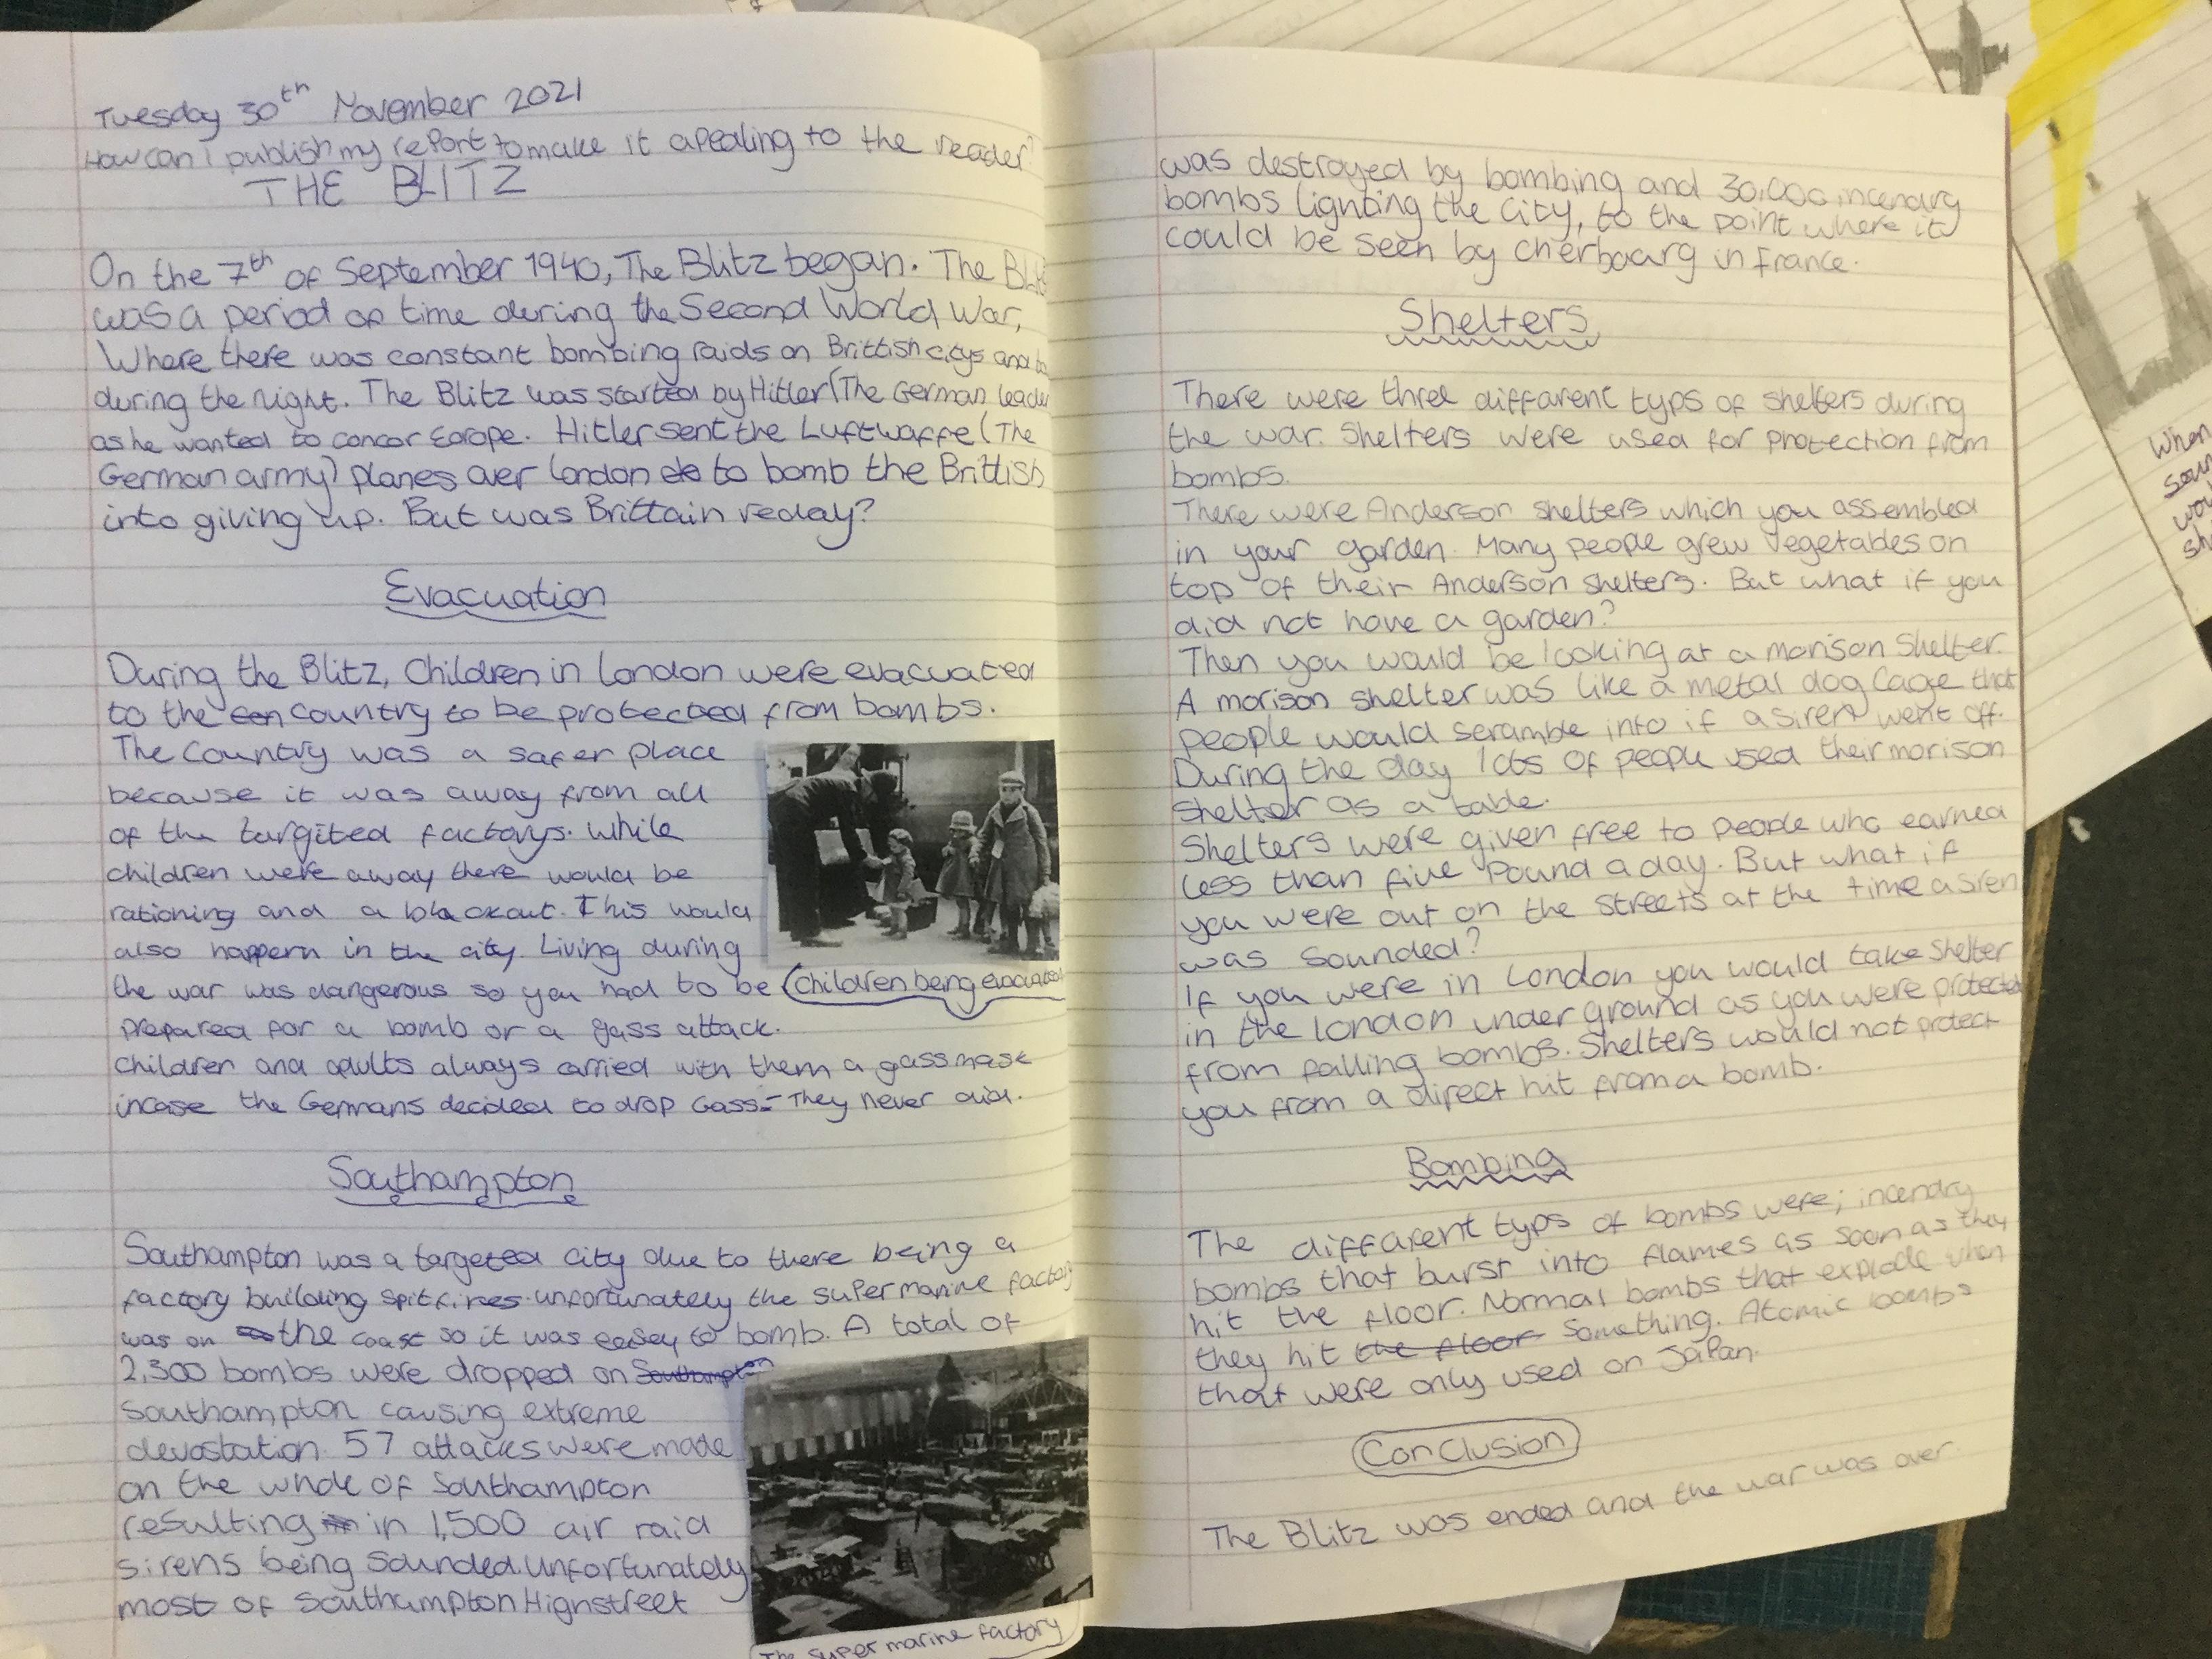 Tuesday 30th November 2021
How can I publish my report to make it apealing to the reader?
THE BLITZ
On the 7th of September 1940, The Blitz began. The Blitz
was a period of time during the Second World War,
Where there was constant bombing raids on Brittish citys and
during the night. The Blitz was started by Hitler (The German leader
as he wanted to concor Eorope. Hitler sent the Luftwaffe (The
German army) planes over London to bomb the Brittish
into giving up. But was Brittain reday?
Evacuation
During the Blitz, Children in London were evacuated
to the country to be protected from bombs.
The Country was a safer place
because it was away from all
of the targited factorys. While
children were away there would be
rationing and a blackout. This would
also happern in the city. Living during
the war was dangerous so you had to be
prepared for a bomb or a gass attack.
Children and adults always carried with them a gassmask
incase the Germans decided to drop Gass - They never did.
Children being evacuated
Southampton
Southampton was a targeted city due to there being a
factory building spitfires. unfortunately the supermarine factory
was on the coast so it was easey to bomb. A total of
2,300 bombs were dropped on Southampton
Southampton causing extreme
devastation. 57 attacks were made
on the whole of Southampton
resulting in 1,500 air raid
sirens being sounded. Unfortunately
most of Southampton Highstreet
The super marine factory
was destroyed by bombing and 30,000 incendry
bombs lighting the city, to the point where it
could be seen by Cherboarg in France.
Shelters
There were three differant typs of shelters during
the war. Shelters were used for protection from
bombs.
There were Anderson shelters which you assembled
in your garden. Many people grew vegetables on
top of their Anderson shelters. But what if you
did not have a garden?
Then you would be looking at a morison Shelter.
A morison shelter was like a metal dog cage that
people would scramble into if a siren went off.
During the day lots of people used their morison
shelter as a table.
Shelters were given free to people who earned
less than five pound a day. But what if
you were out on the streets at the time a siren
was sounded?
If you were in London you would take shelter
in the London under ground as you were protected
from falling bombs. Shelters would not protect
you from a direct hit from a bomb.
Bombing
The differant typs of bombs were; incendry
bombs that burst into flames as soon as they
hit the floor. Normal bombs that explode when
they hit the floor something. Atomic bombs
that were only used on Japan.
Conclusion
The Blitz was ended and the war was over
When